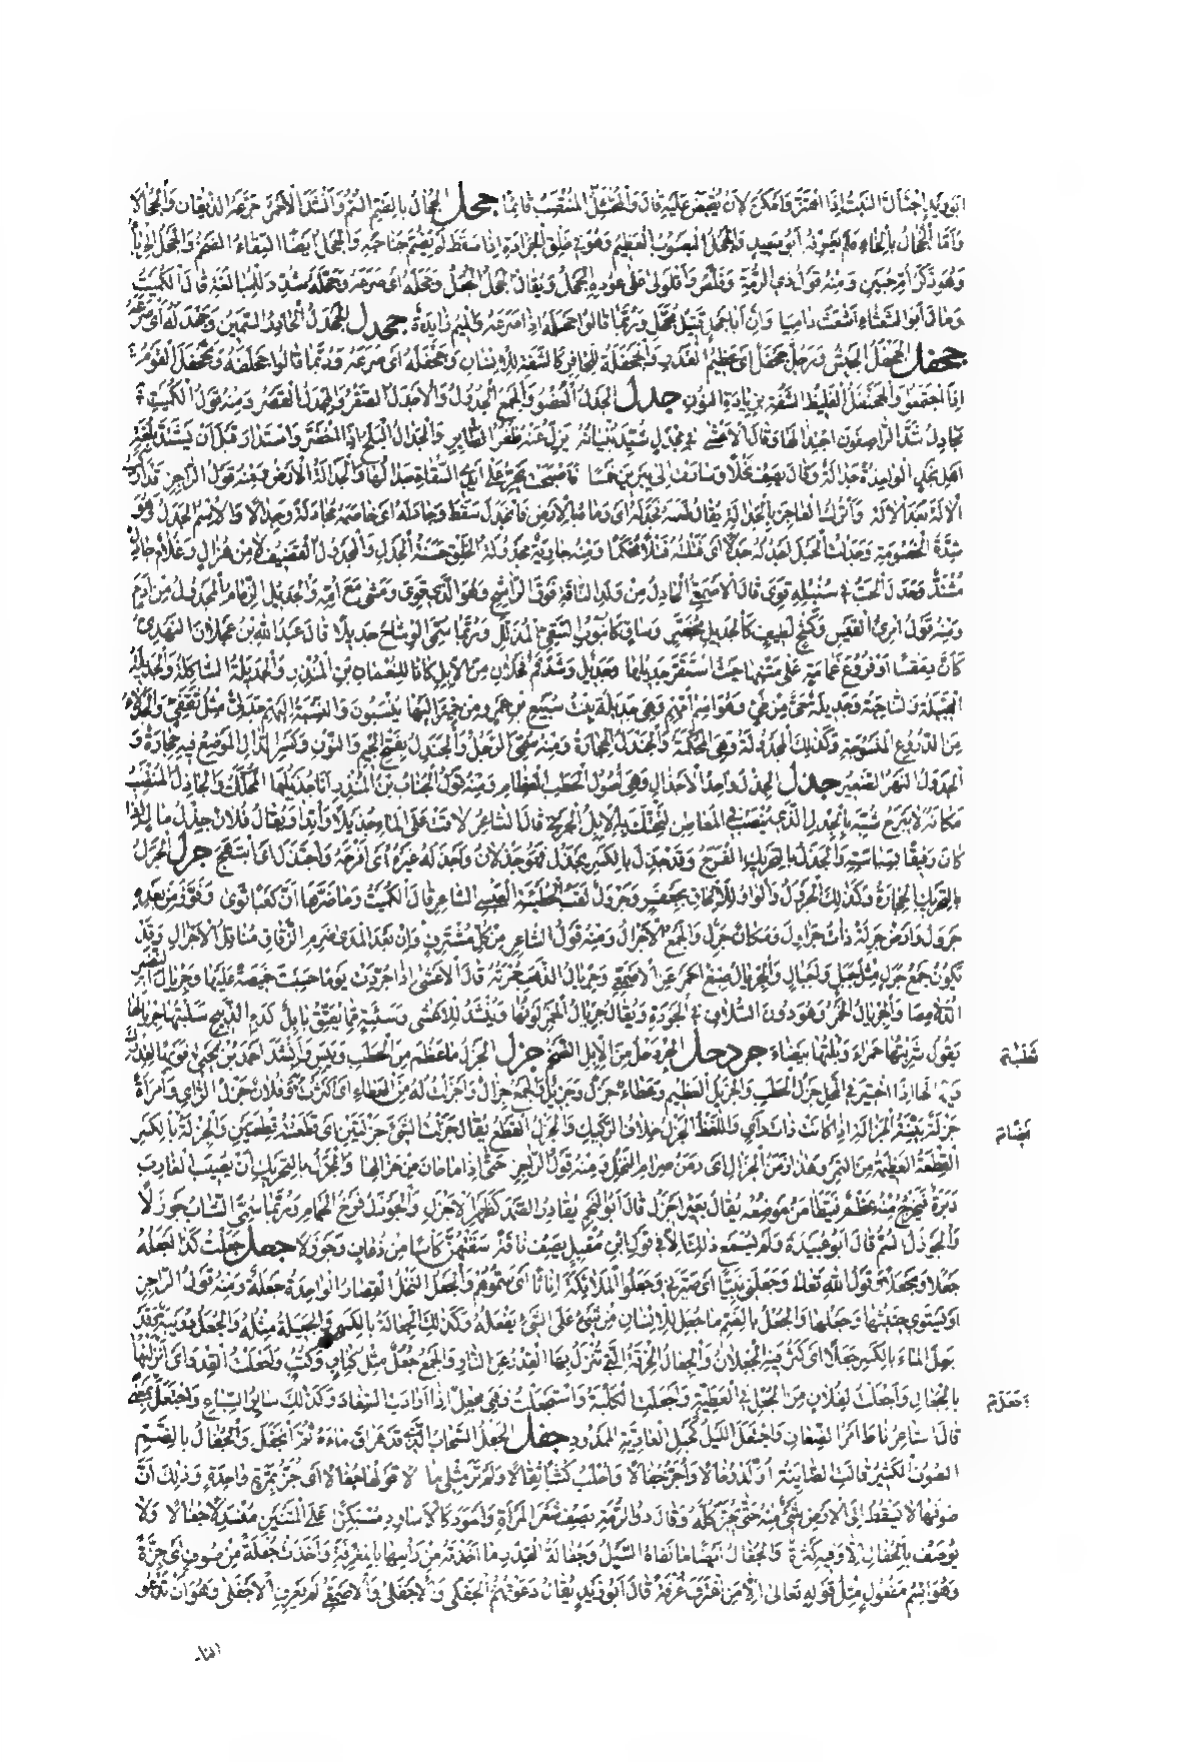 ابو زيد اجثأل النبت اذا اهتز وامكن لان يقبض عليه قال والمجثئل المنتصب قائما جحل الجحال بالضم السم وانشد الاحمر جرعه الذيفان والجحالا
واما الجحال بالخاء فلم يعرفه ابو سعيد والجحل اليعسوب العظيم وهو في خلق الجرادة اذا سقط لم يضم جناحيه والجحل ايضا السقاء الضخم والجحل الحرباء
وهو ذكر ام حبين ومنه قول ذي الرمة وقلص واقلولى على عوده الجحل ويقال جحل الجعل وجحله اي صرعه وجحله شدد للمبالغة قال الكميت
ومال ابو الشعثاء اشعث داميا وان ابا جحل قتيل مجحل وربما قالوا جحلمه اذا صرعه والميم زايدة جحدل الجحدل الحادر السمين وجحدله اي صرعه
جحفل الجحفل الجيش ورجل جحفل اي عظيم القدر والجحفلة للحافر كالشفة للانسان وجحفله اي صرعه وربما قالوا جعفله وتجحفل القوم
اذا اجتمعوا والجحنفل الغليظ الشفة بزيادة النون جدل الجدل العضو والجمع الجدول والاجدل الصقر والمجدل القصر ومنه قول الكميت
مجادل شد الراصفون اجتدالها وقال الاعشى في مجدل شيد بنيانه يزل عنه ظفر الطاير والجدال البلح اذا اخضر واستدار قبل ان يشتد بلغة
اهل نجد الواحدة جدالة وقال يصف نخلا وسارت الى يبرين خمسا فاصبحت يخر على ايدي السقاة جدالها والجدالة الارض ومنه قول الراجز قد اركب
الآلة بعد الآلة واترك العاجز بالجدالة يقال طعنه فجدله اي رماه بالارض فانجدل سقط وجادله اي خاصمه مجادلة وجدالا والاسم الجدل وهو
شدة الخصومة وجدلت الحبل اجدله جدلا اي فتلته فتلا محكما ومنه جارية مجدولة الخلق حسنة الجدل والمجدول القضيف لا من هزال وغلام جادل
مشتد وجدل الحب في سنبله قوي قال الاصمعي الجادل من ولد الناقة فوق الراشح وهو الذي قوي ومشى مع امه والجديل الزمام المجدول من ادم
ومنه قول امرئ القيس وكشح لطيف كالجديل مخصر وساق كانبوب السقي المذلل وربما سمي الوشاح جديلا قال عبد الله بن عجلان النهدي
كان دمقسا او فروع غمامة على متنها حيث استقر جديلها وجديل وشدقم فحلان من الابل كانا للنعمان بن المنذر والجديلة الشاكلة والجديلة
القبيلة والناحية وجديلة حي من طي وهو اسم امهم وهي جديلة بنت سبيع بن عمرو من حمير اليها ينسبون والنسبة اليهم جدلي مثل ثقفي والجدلاء
من الدروع المنسوجة وكذلك المجدولة وهي المحكمة والجندل الحجارة ومنه سمي الرجل والجندل بفتح الجيم والنون وكسر الدال الموضع فيه حجارة و
الجدول النهر الصغير جذل الجذل واحد الاجذال وهي اصول الحطب العظام ومنه قول الحباب بن المنذر انا جذيلها المحكك والجاذل المنتصب
مكانه لا يبرح شبه بالجذل الذي ينصب في المعاطن لتحتك به الابل الجربى قال الشاعر لاقت على الماء جذيلا واتدا ويقال فلان جذل مال اذا
كان رفيقا بسياسته والجذل بالتحريك الفرح وقد جذل بالكسر يجذل فهو جذلان واجذله غيره اي افرحه واجتذل اي ابتهج جرل الجرل
بالتحريك الحجارة وكذلك الجرول والواو للالحاق بجعفر وجرول لقب الحطيئة العبسي الشاعر قال الكميت وما ضرها ان كعبا ثوى وفوز من بعده
جرول وارض جرلة ذات جراول ومكان جرل والجمع الاجرال ومنه قول الشاعر من كل مشترف وان بعد المدى ضرم الرقاق مناقل الاجرال وقد
تكون جمع جرل مثل جبل واجبال والجريال صبغ احمر عن الاصمعي وجريال الذهب حمرته قال الاعشى اذا جردت يوما حسبت خميصة عليها وجريال النضير
الدلامصا والجريال الخمر وهو دون السلاف في الجودة ويقال جريال الخمر لونها وينشد للاعشى وسبيئة مما يعتق بابل كدم الذبيح سلبتها جريالها
يقول شربتها حمراء وبلتها بيضاء جردحل الجردحل من الابل الضخم جزل الجزل ما عظم من الحطب ويبس
جزلة بينة الجزالة اذا كانت ذات راي واللفظ الجزل خلاف الركيك والجزل القطع يقال جزلت الشي جزلتين اي قطعته قطعتين والجزلة بالكسر
القطعة العظيمة من التمر وهذا زمن الجزال اي زمن صرام النخل ومنه قول الراجز حتى اذا ما حان من جزالها والجزل بالتحريك ان يصيب الغارب
دبرة فيخرج منه عظم فيطمئن موضعه يقال بعير اجزل قال ابو النجم يغادر الصمد كظهر الاجزل والجوزل فرخ الحمام وربما سمي الشاب جوزلا
والجوزل السم قال ابو عبيدة ولم يسمع ذلك الا في قول ابن مقبل يصف ناقة سقتهن كاسا من ذعاف وجوزلا جعل جعلت كذا اجعله
جعلا ومجعلا وقول الله تعالى وجعلني نبيا اي صيرني وجعلوا الملائكة اناثا اي سموهم والجعل النخل القصار الواحدة جعلة ومنه قول الراجز
او يستوي جثيثها وجعلها والجعل بالضم ما جعل للانسان من شي على الشي يفعله وكذلك الجعالة بالكسر والجعيلة مثله والجعل دويبة وقد
جعل الماء بالكسر جعلا اي كثر فيه الجعلان والجعال الخرقة التي تنزل بها القدر عن النار والجمع جعل مثل كتاب وكتب واجعلت القدر اي انزلتها
بالجعال واجعلت لفلان من الجعل في العطية واجعلت الكلبة واستجعلت فهي مجعل اذا ارادت السفاد وكذلك ساير السباع واجتعل بمعنى
قال الشاعر ناط امر الضعاف واجتعل الليل كحبل العادية الممدود جفل الجفل السحاب الذي قد هراق ماءه ثم انجفل والجفال بالضم
الصوف الكثير قالت الضاينة اولد رخالا واجز جفالا واحلب كثبا ثقالا ولم تر مثلي مالا قولها جفالا اي جز بمرة واحدة وذلك ان
صوفها لا يسقط الى الارض شي منه حتى يجز كله وقال ذو الرمة يصف شعر المرأة واسود كالاساود مسبكرا على المتنين منسدلا جفالا ولا
يوصف بالجفال الا وفيه كثرة والجفال ايضا ما نفاه السيل وجفالة القدر ما اخذته من راسها بالمغرفة واخذت جفلة من صوف اي جزة
وهو اسم مفعول مثل قوله تعالى الا من اغترف غرفة قال ابو زيد يقال دعوتهم الجفلى والاجفلى والاصمعي لم يعرف الاجفلى وهو ان تدعو